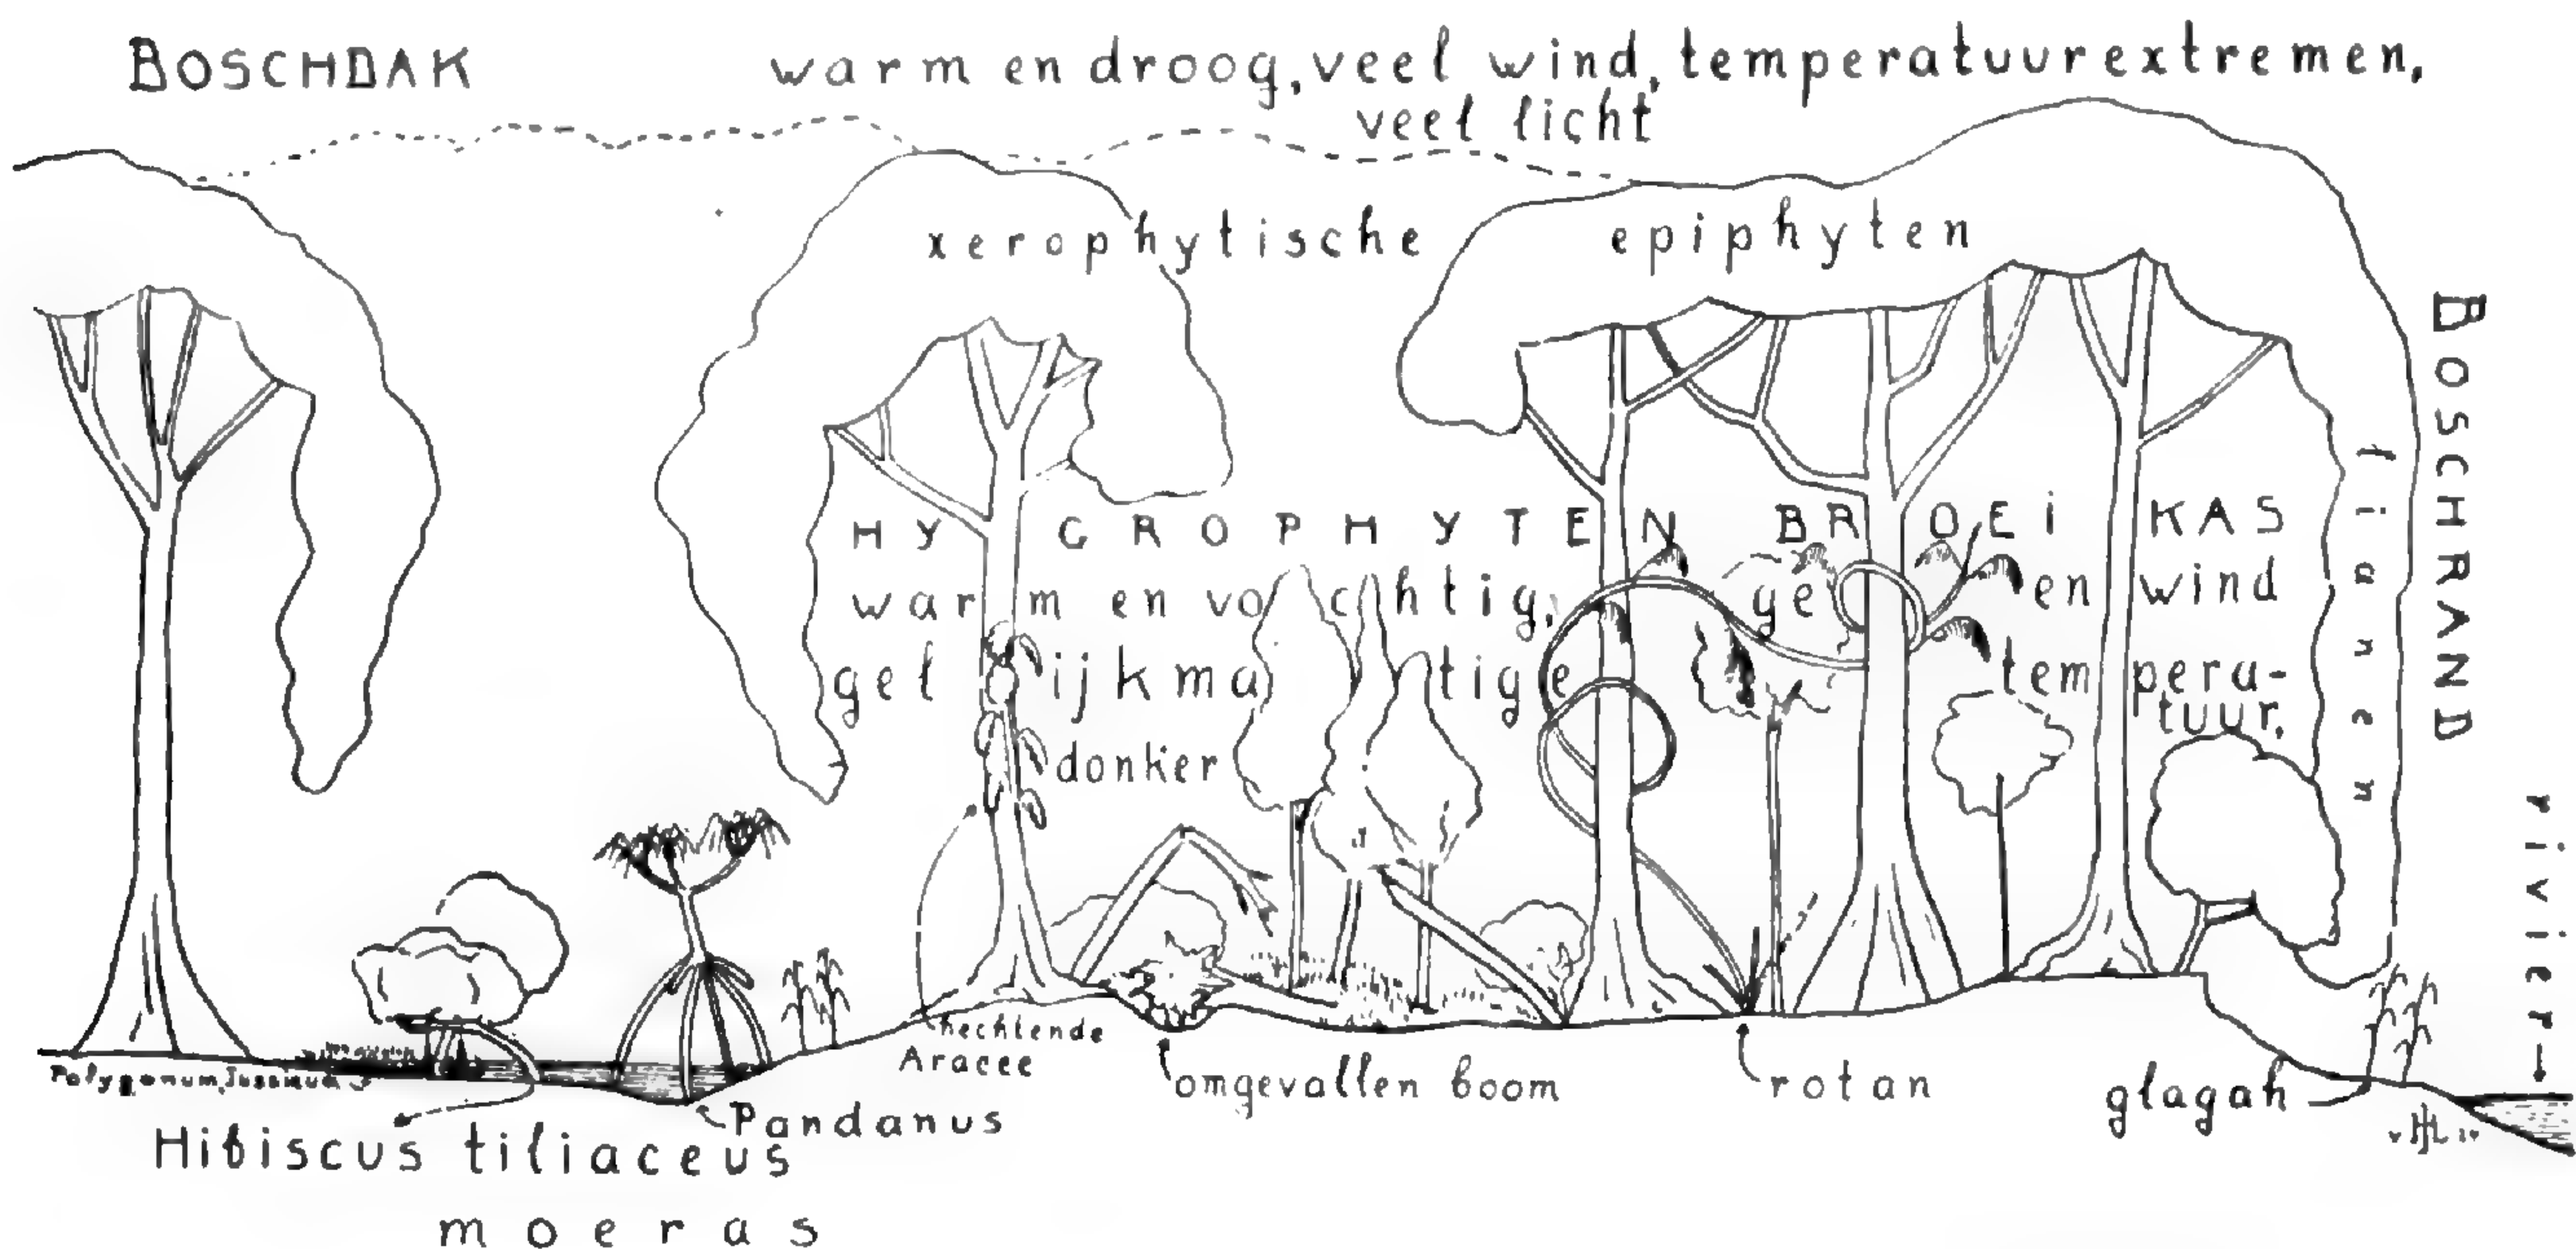 BOSCHDAK
warm en droog, veel wind, temperatuurextremen,
veel licht
xerophytische epiphyten
HYGROPHYTEN BROEIKAS
warm en vochtig, geen wind
gelijkmatige tempera-
tuur,
donker
lianen
BOSCHRAND
rivier
hechtende
Aracee
Polygonum,
omgevallen boom
rotan
glagah
Pandanus
Hibiscus tiliaceus
moeras